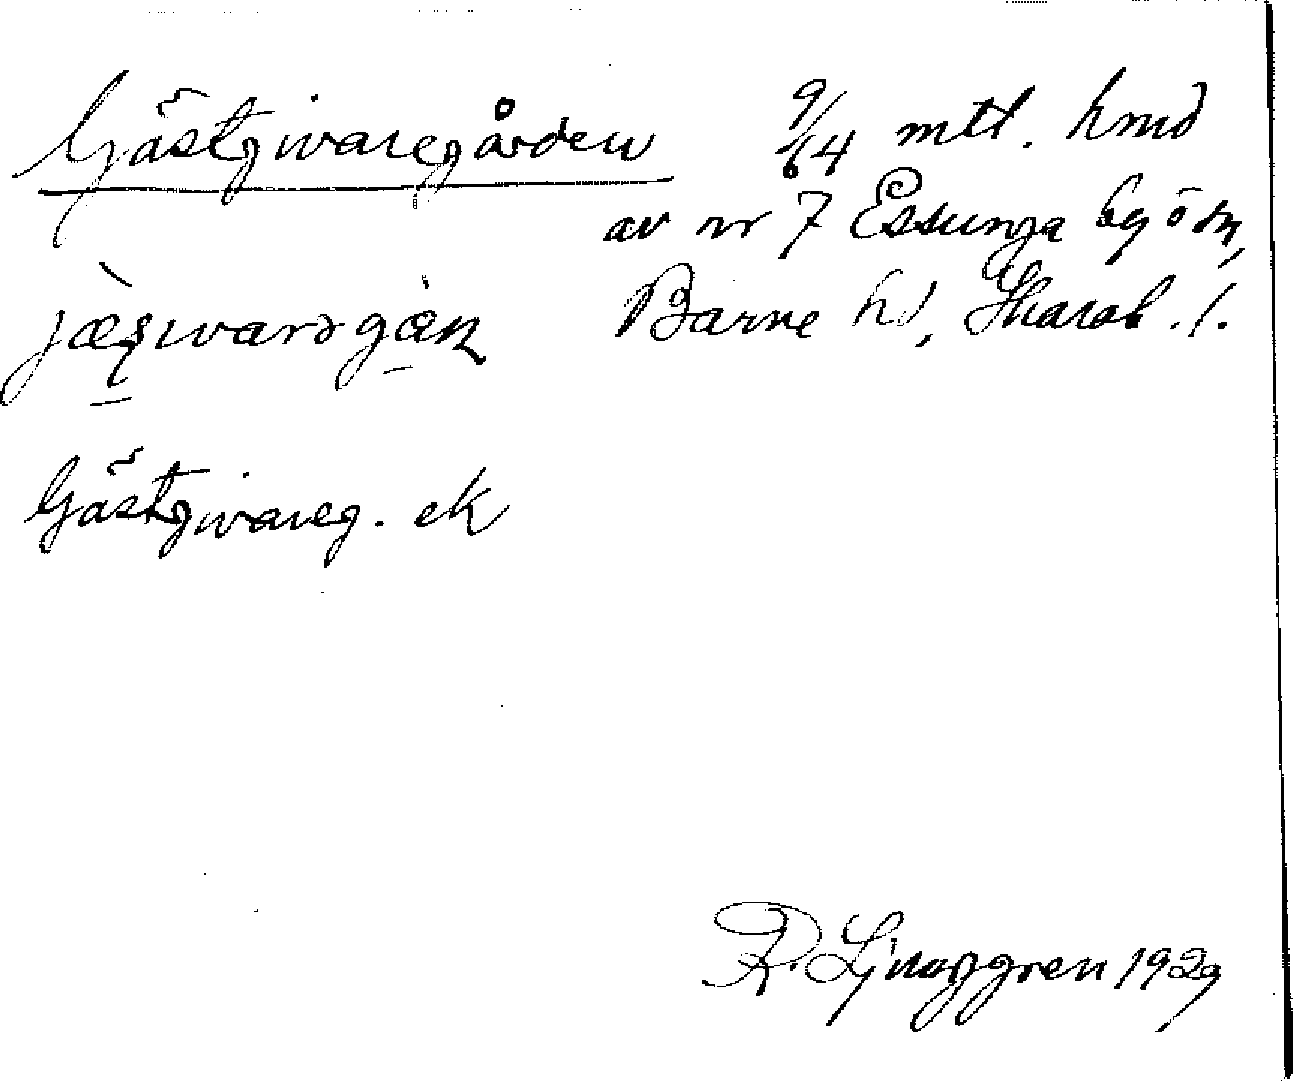 Gästgivaregården 9/64 mtl. hmd
av nr 7 Essunga by o sn,
jæșwarəgàɳ Barne hd, Skarab. l.
Gästgivareg. ek
R. Ljunggren 1929